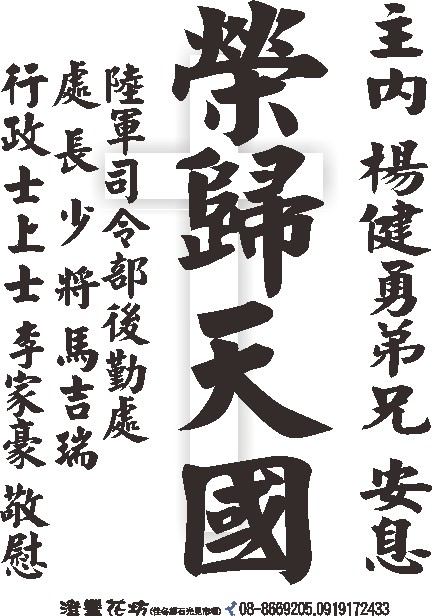 主內 楊健勇弟兄 安息
榮歸天國
陸軍司令部後勤處
處長少將馬吉瑞
行政士上士 李家豪 敬慰
澄豐花坊(佳冬鄉石光見市場) 08-8669205.0919172433